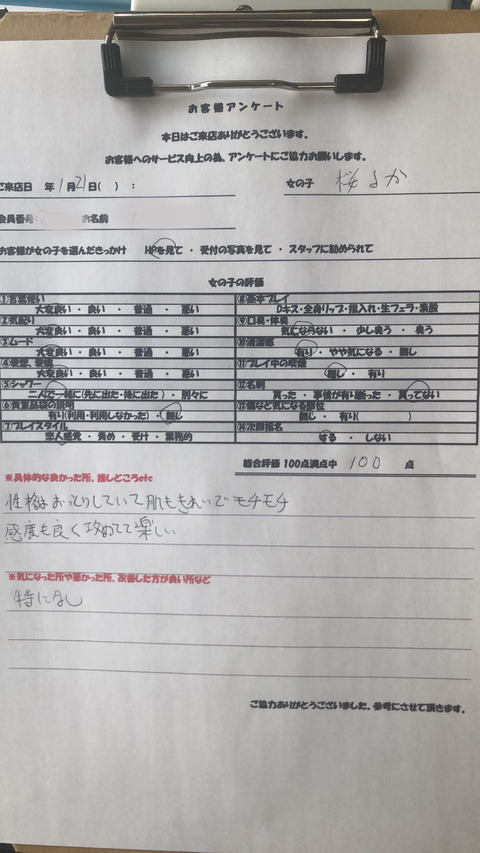 お客様アンケート
本日はご来店ありがとうございます。
お客様へのサービス向上の為、アンケートにご協力お願いします。
ご来店日 年 1月21日( ) :
女の子 桜るか
会員番号: お名前
お客様が女の子を選んだきっかけ HPを見て ・ 受付の写真を見て ・ スタッフに勧められて
女の子の評価
①言葉使い
大変良い ・ 良い ・ 普通 ・ 悪い
②気配り
大変良い ・ 良い ・ 普通 ・ 悪い
③ムード
大変良い ・ 良い ・ 普通 ・ 悪い
④愛想、愛嬌
大変良い ・ 良い ・ 普通 ・ 悪い
⑤シャワー
二人で一緒に(先に出た・後に出た) ・ 別々に
⑥貴重品袋の説明
有り(利用・利用しなかった) ・ 無し
⑦プレイスタイル
恋人感覚 ・ 責め ・ 受け ・ 業務的
⑧基本プレイ
Dキス・全身リップ・指入れ・生フェラ・素股
⑨口臭・体臭
気にならない ・ 少し臭う ・ 臭う
⑩清潔感
有り ・ やや気になる ・ 無し
⑪プレイ中の喫煙
無し ・ 有り
⑫名刺
貰った ・ 事情が有り断った ・ 貰ってない
⑬傷など気になる部位
無し ・ 有り( )
⑭次回指名
する ・ しない
総合評価 100点満点中 100 点
※具体的な良かった所、推しどころetc
性格はおっとりしていて肌もきれいでモチモチ
感度も良く攻めてて楽しい
※気になった所や悪かった所、改善した方が良い所など
特になし
ご協力ありがとうございました。参考にさせて頂きます。